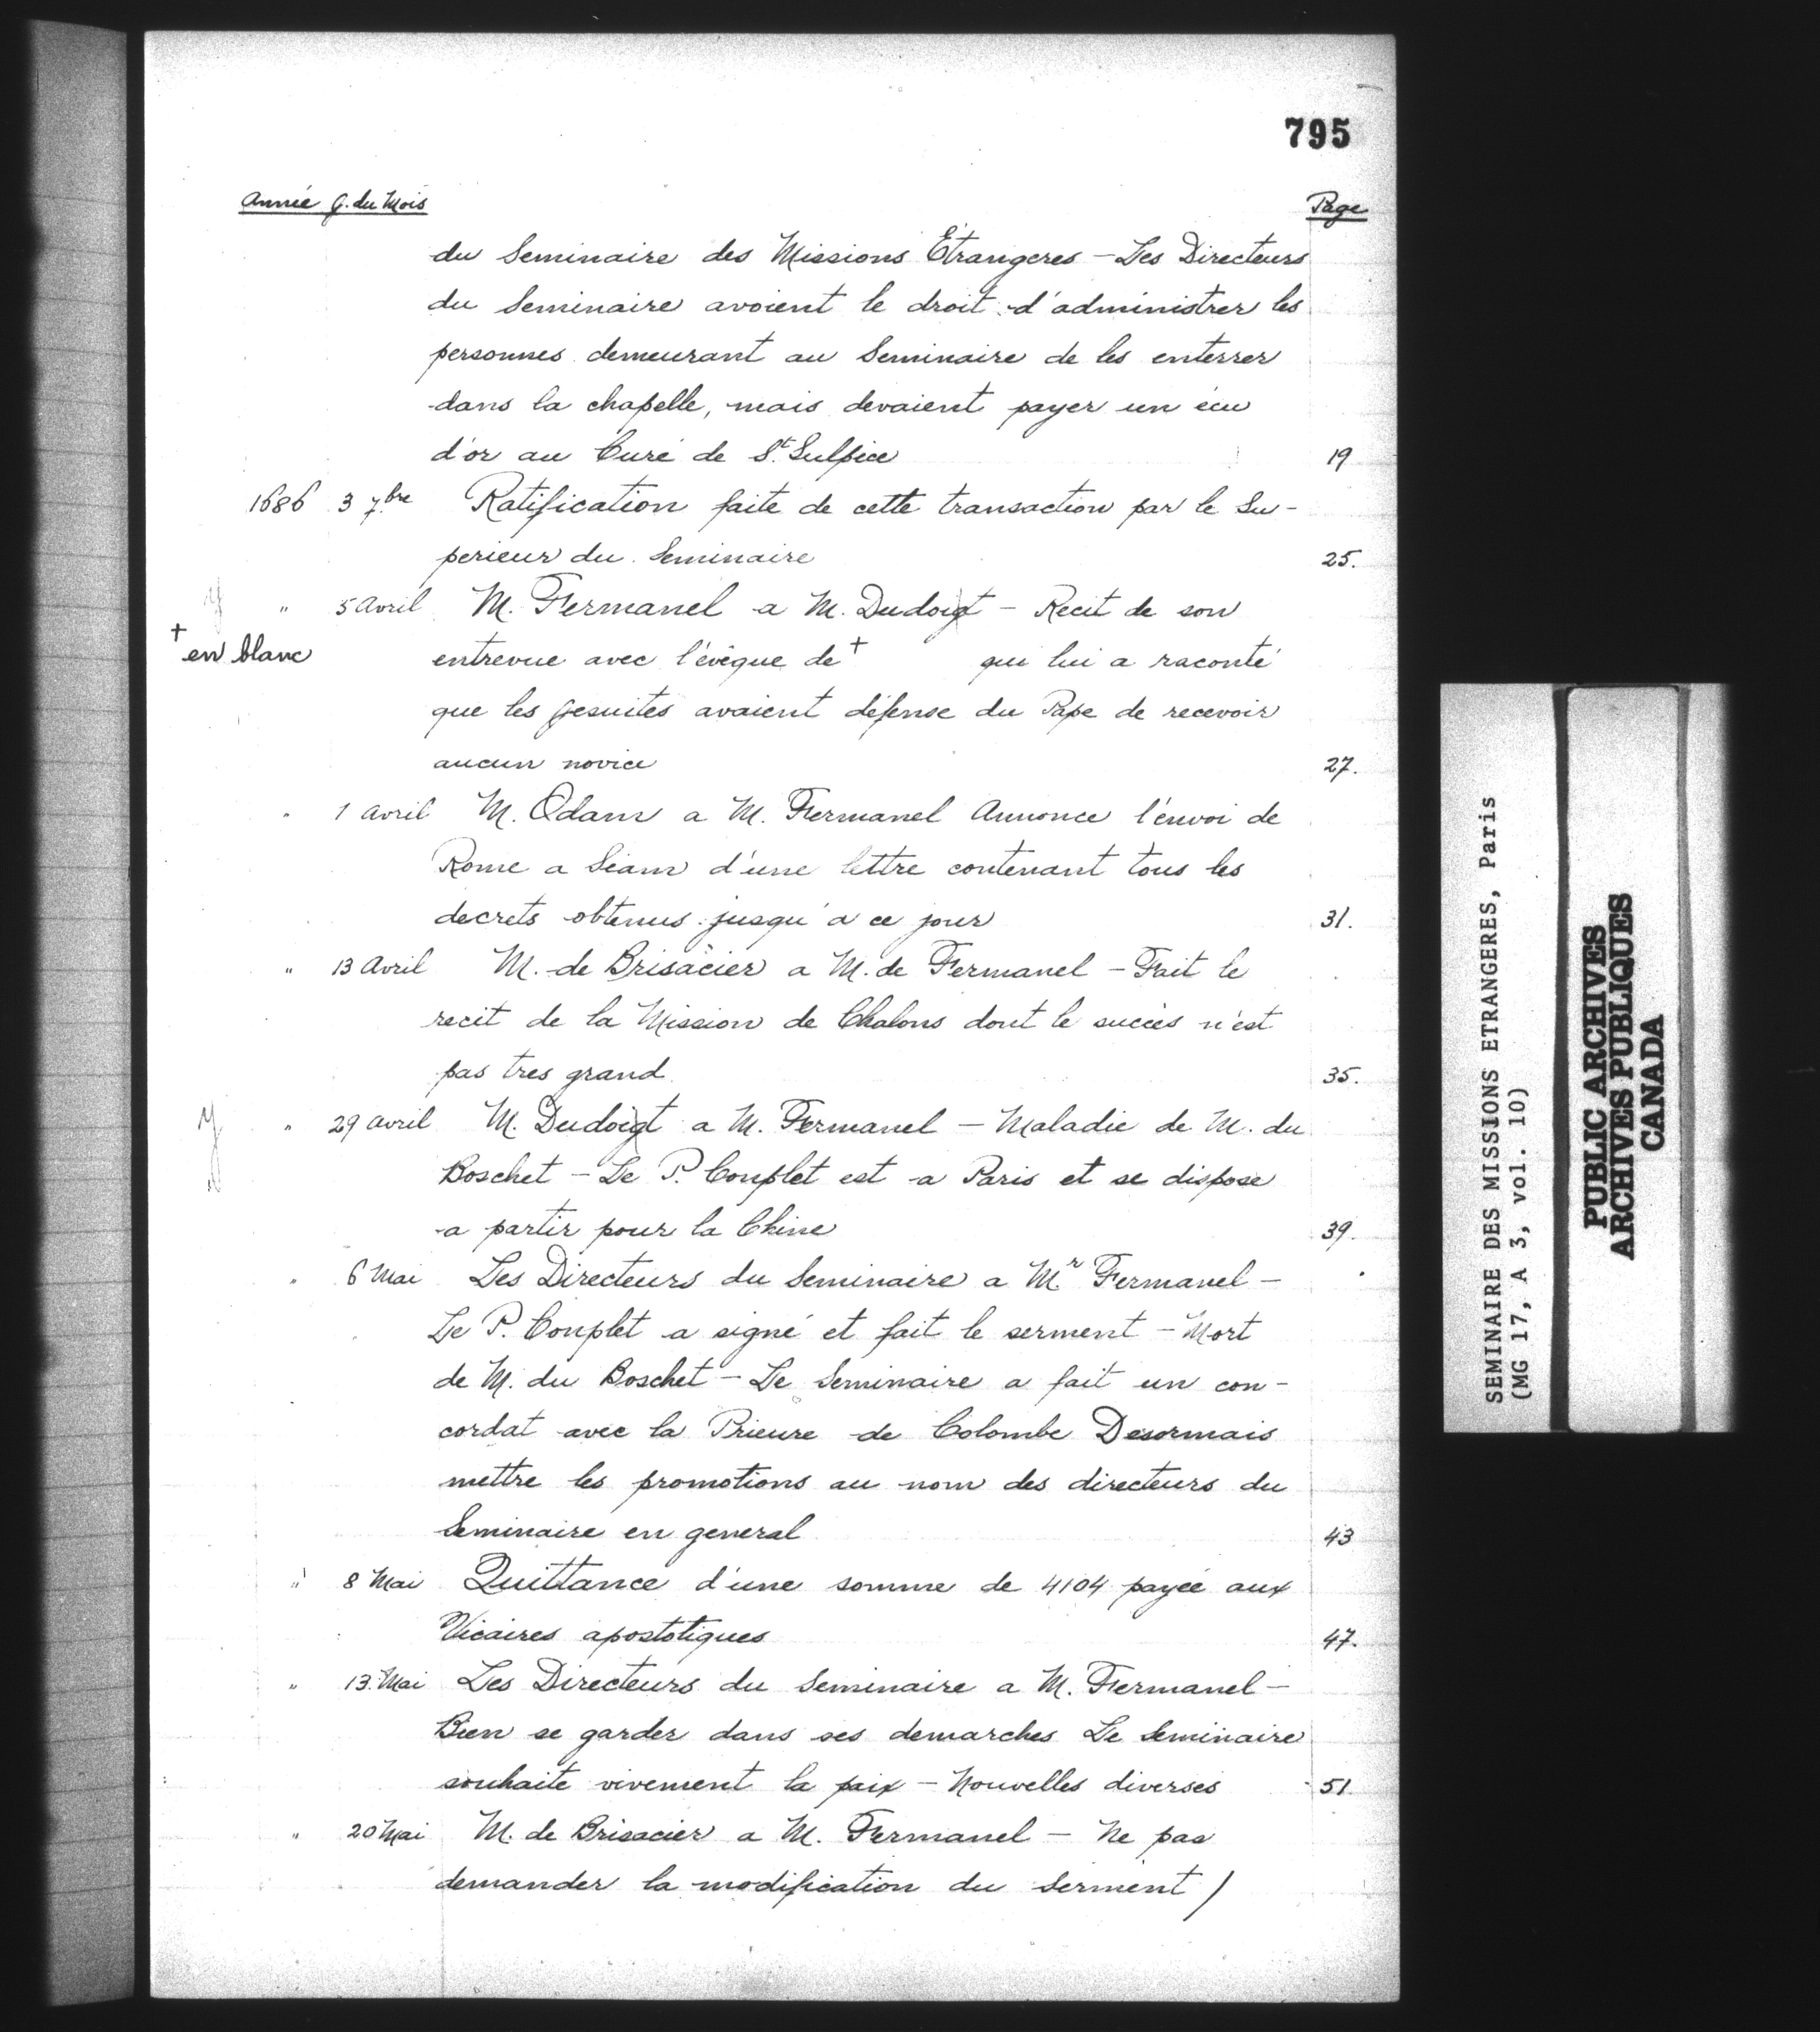 795
Année J. du Mois Page
du Seminaire des Missions Étrangeres - Les Directeurs
du Seminaire avoient le droit d'administrer les
personnes demeurant au Seminaire de les enterrer
dans la chapelle, mais devaient payer un écu
d'or au Curé de St. Sulpice 19
1686 3 7bre Ratification faite de cette transaction par le Su-
perieur du Seminaire 25.
" 5 Avril M. Fermanel a M. Dudoigt - Recit de son
† en blanc entrevue avec l'évêque de † qui lui a raconté
que les Jesuites avaient défense du Pape de recevoir
aucun novice 27.
" 1 Avril M. Odam a M. Fermanel Annonce l'envoi de
Rome a Siam d'une lettre contenant tous les
decrets obtenus jusqu'a ce jour 31.
" 13 Avril M. de Brisacier a M. de Fermanel - Fait le
recit de la Mission de Chalons dont le succès n'est
pas tres grand 35.
" 29 Avril M. Dudoigt a M. Fermanel - Maladie de M. du
Boschet - Le P. Couplet est a Paris et se dispose
a partir pour la Chine 39.
" 6 Mai Les Directeurs du Seminaire a Mr Fermanel -
Le P. Couplet a signé et fait le serment - Mort
de M. du Boschet - Le Seminaire a fait un con-
cordat avec la Prieure de Colombe Desormais
mettre les promotions au nom des directeurs du
Seminaire en general 43
" 8 Mai Quittance d'une somme de 4104 payée aux
Vicaires apostotiques 47.
" 13 Mai Les Directeurs du Seminaire a M. Fermanel -
Bien se garder dans ses demarches Le Seminaire
souhaite vivement la paix - Nouvelles diverses 51
" 20 Mai M. de Brisacier a M. Fermanel - Ne pas
demander la modification du serment /
SEMINAIRE DES MISSIONS ETRANGERES, Paris
(MG 17, A 3, vol. 10)
PUBLIC ARCHIVES
ARCHIVES PUBLIQUES
CANADA